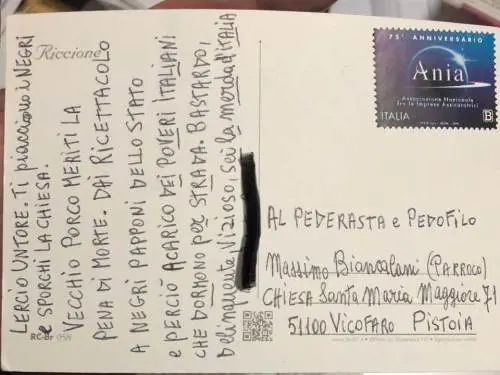 Riccione
LERCIO UNTORE. TI piacciono i NEGRI
e SPORCHI LA CHIESA.
VECCHIO PORCO MERITI LA
PENA DI MORTE. DAI RICETTACOLO
A NEGRI PAPPONI DELLO STATO
e PERCIÒ ACARICO DEI POVERI ITALIANI
CHE DORMONO PER STRADA. BASTARDO,
DELINQUENTE, VIZIOSO, SEI LA MERDA D'ITALIA
RC-Br 058
75° ANNIVERSARIO
Ania
Associazione Nazionale
fra le Imprese Assicuratrici
ITALIA B
AL PEDERASTA e PEDOFILO
Massimo Biancalani (PARROCO)
CHIESA Santa Maria Maggiore 71
51100 VICOFARO PISTOIA